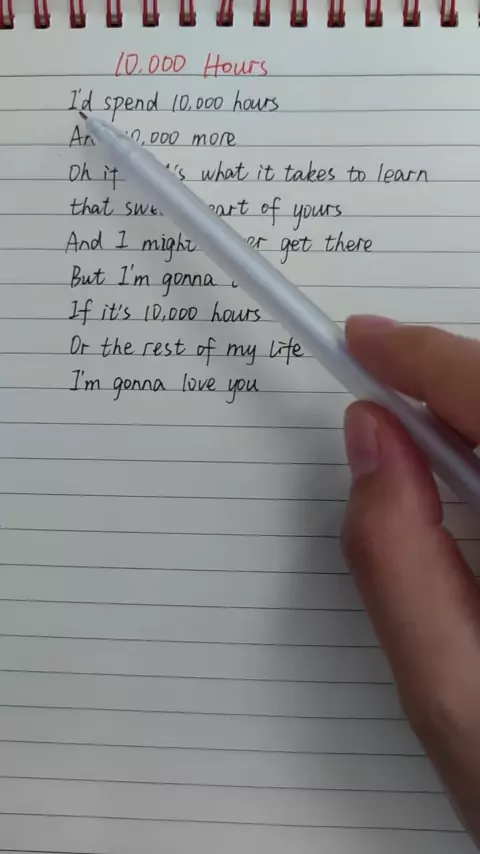 10.000 Hours
I'd spend 10,000 hours
10,000 more
Oh if what it takes to learn
that of yours
And I might get there
But I'm gonna
If it's 10,000 hours
Or the rest of my life
I'm gonna love you